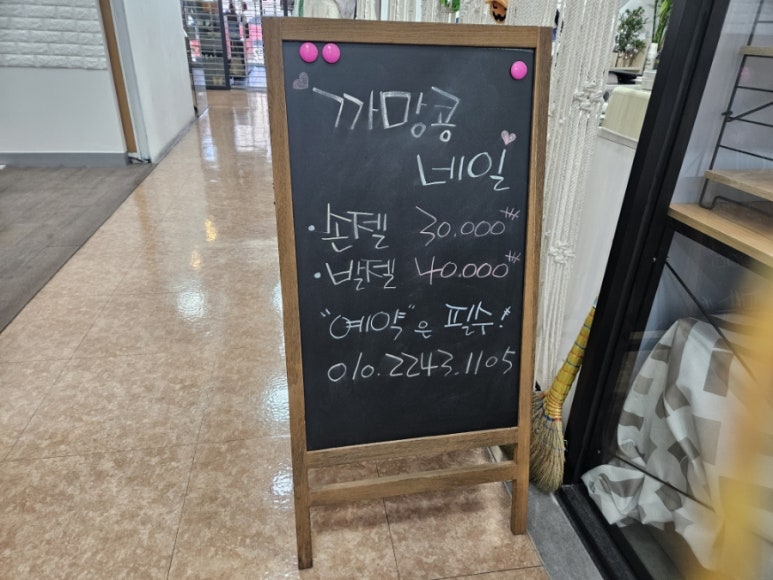 까망콩
네일
• 손젤 30.000₩
• 발젤 40.000₩
"예약"은 필수!
010.2243.1105